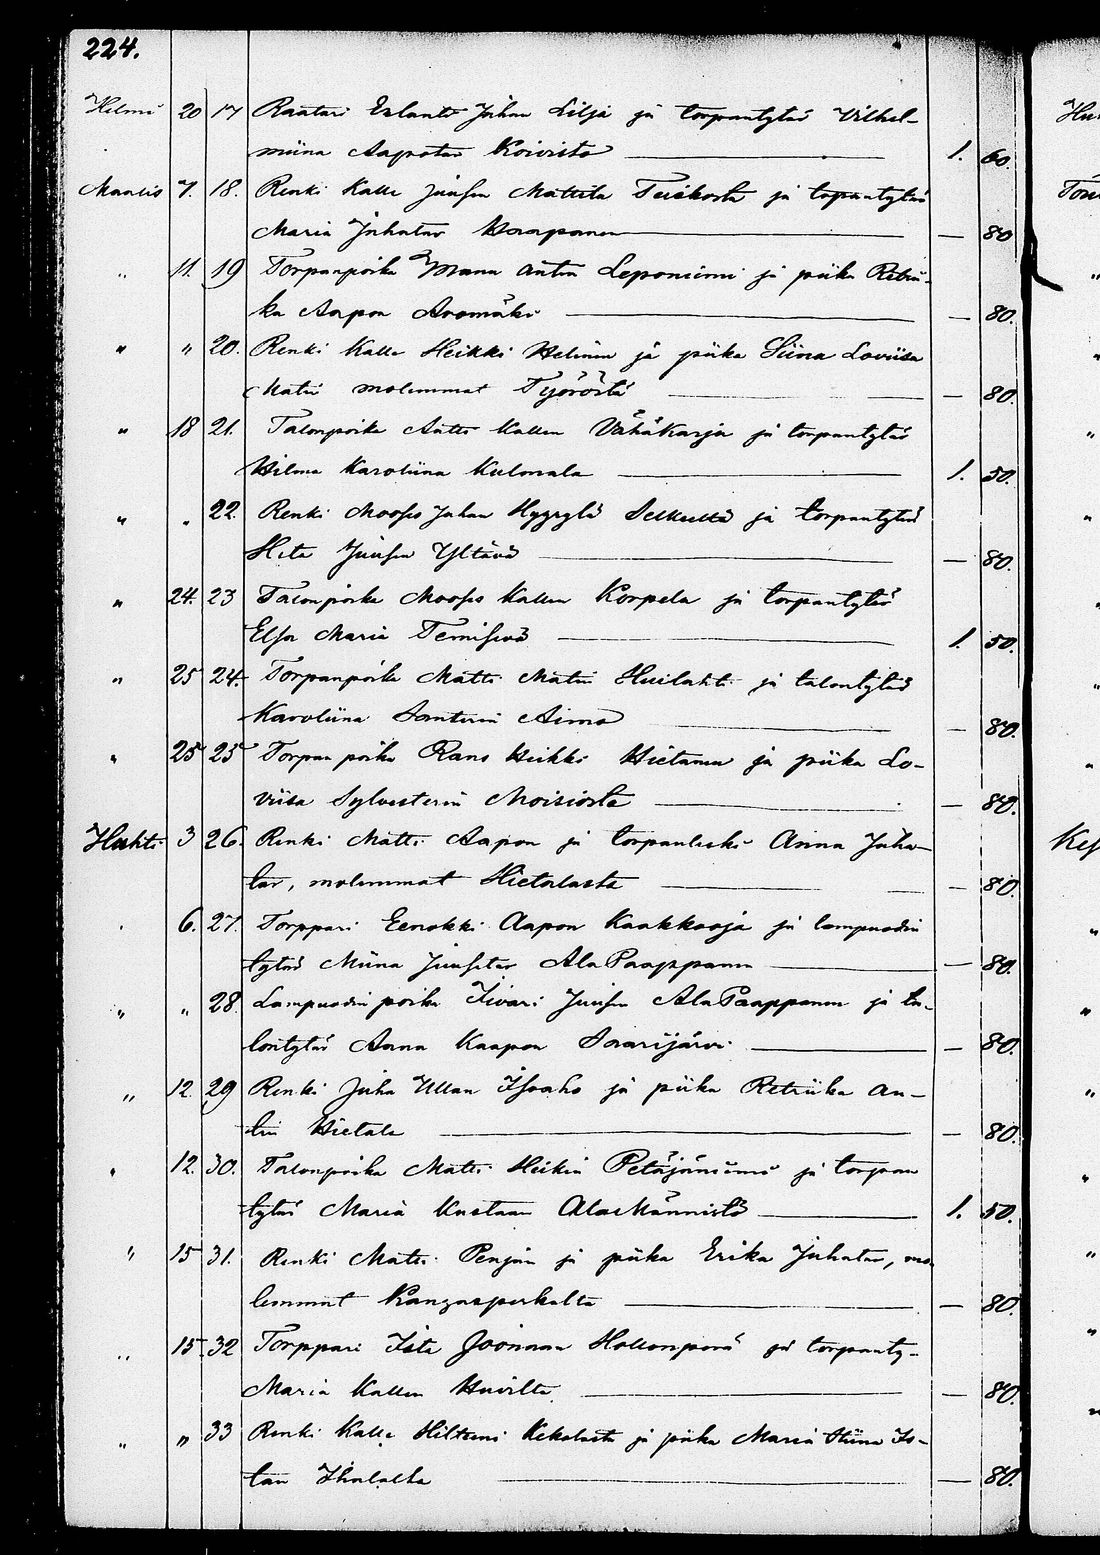 224.
Helmi 20 17 Raatari Eslanti Juhan Lilja ja torpantytär Vilhel-
miina Aapatar Koivisto — 1. 60.
Maalis 7. 18. Renki Kalle Juusen Mattila Teiskosta ja torpantytär
Maria Juhatar Haapanen — 80
" 11. 19 Torpanpoika Manu Antin Leponiemi ja piika Retrii-
ka Aapon Aromäki — 80.
" " 20. Renki Kalle Heikki Helinen ja piika Siina Loviisa
Matin molemmat Työröstä — 80.
" 18 21. Talonpoika Antti Kallen Vähäkarja ja torpantytär
Hilma Karoliina Kulmala — 1. 50.
" " 22. Renki Mooses Juhan Hyyrylä ja torpantytär
Heta Juusen Yltävä — 80.
" 24. 23 Talonpoika Mooses Kallen Korpela ja torpantytär
Elsa Maria — 1. 50.
" 25 24. Torpanpoika Matti Matin Huilahti ja talontytär
Karoliina Santerin Aimo — 80.
" 25 25 Torpan poika Rans Heikki Hietanen ja piika Lo-
viisa Sylvesterin Moisiosta — 80.
Huhti 3 26. Renki Matti Aapon ja torpanleski Anna Juha-
tar, molemmat Hietalasta — 80.
6. 27. Torppari Eenokki Aapon Kaakkooja ja lampuodin
tytär Miina Juusetar AlaPaappanen — 80.
" " 28. Lampuodin poika Iivari Juusen AlaPaappanen ja ta-
lontytär Anna Kaapon Saarijärvi — 80.
" 12. 29 Renki Juha Ullan Isoaho ja piika Retriika An-
tin Hietala — 80.
" 12. 30. Talonpoika Matti Heikin Petäjäniemi ja torpan
tytär Maria Kustaan AlaMännistö — 1. 50.
" 15 31. Renki Matti Penjan ja piika Erika Juhatar, mo-
lemmat Kangasperkalta — 80.
" 15. 32 Torppari Iisa Joonaan Hallonperä ja torpanty-
Maria Kallen Huvilta — 80.
" " 33 Renki Kalle Kekolasta ja piika Maria Stiina Is-
tan — 80.